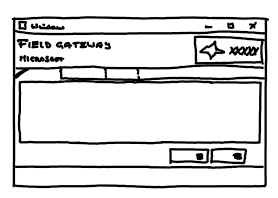 Window
FIELD GATEWAY
MICROSOFT
XXXXX